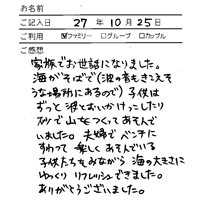 お名前
ご記入日 27年10月25日
ご利用 ☑ファミリー □グループ □カップル
ご感想
家族でお世話になりました。
海がそばで(波の音もきこえそ
うな場所にあるので)子供は
ずっと波とおいかけっこしたり
砂で山をつくってあそんで
いました。夫婦でベンチに
すわって楽しくあそんでいる
子供たちもみながら海の大きさに
ゆっくりリフレッシュできました。
ありがとうございました。